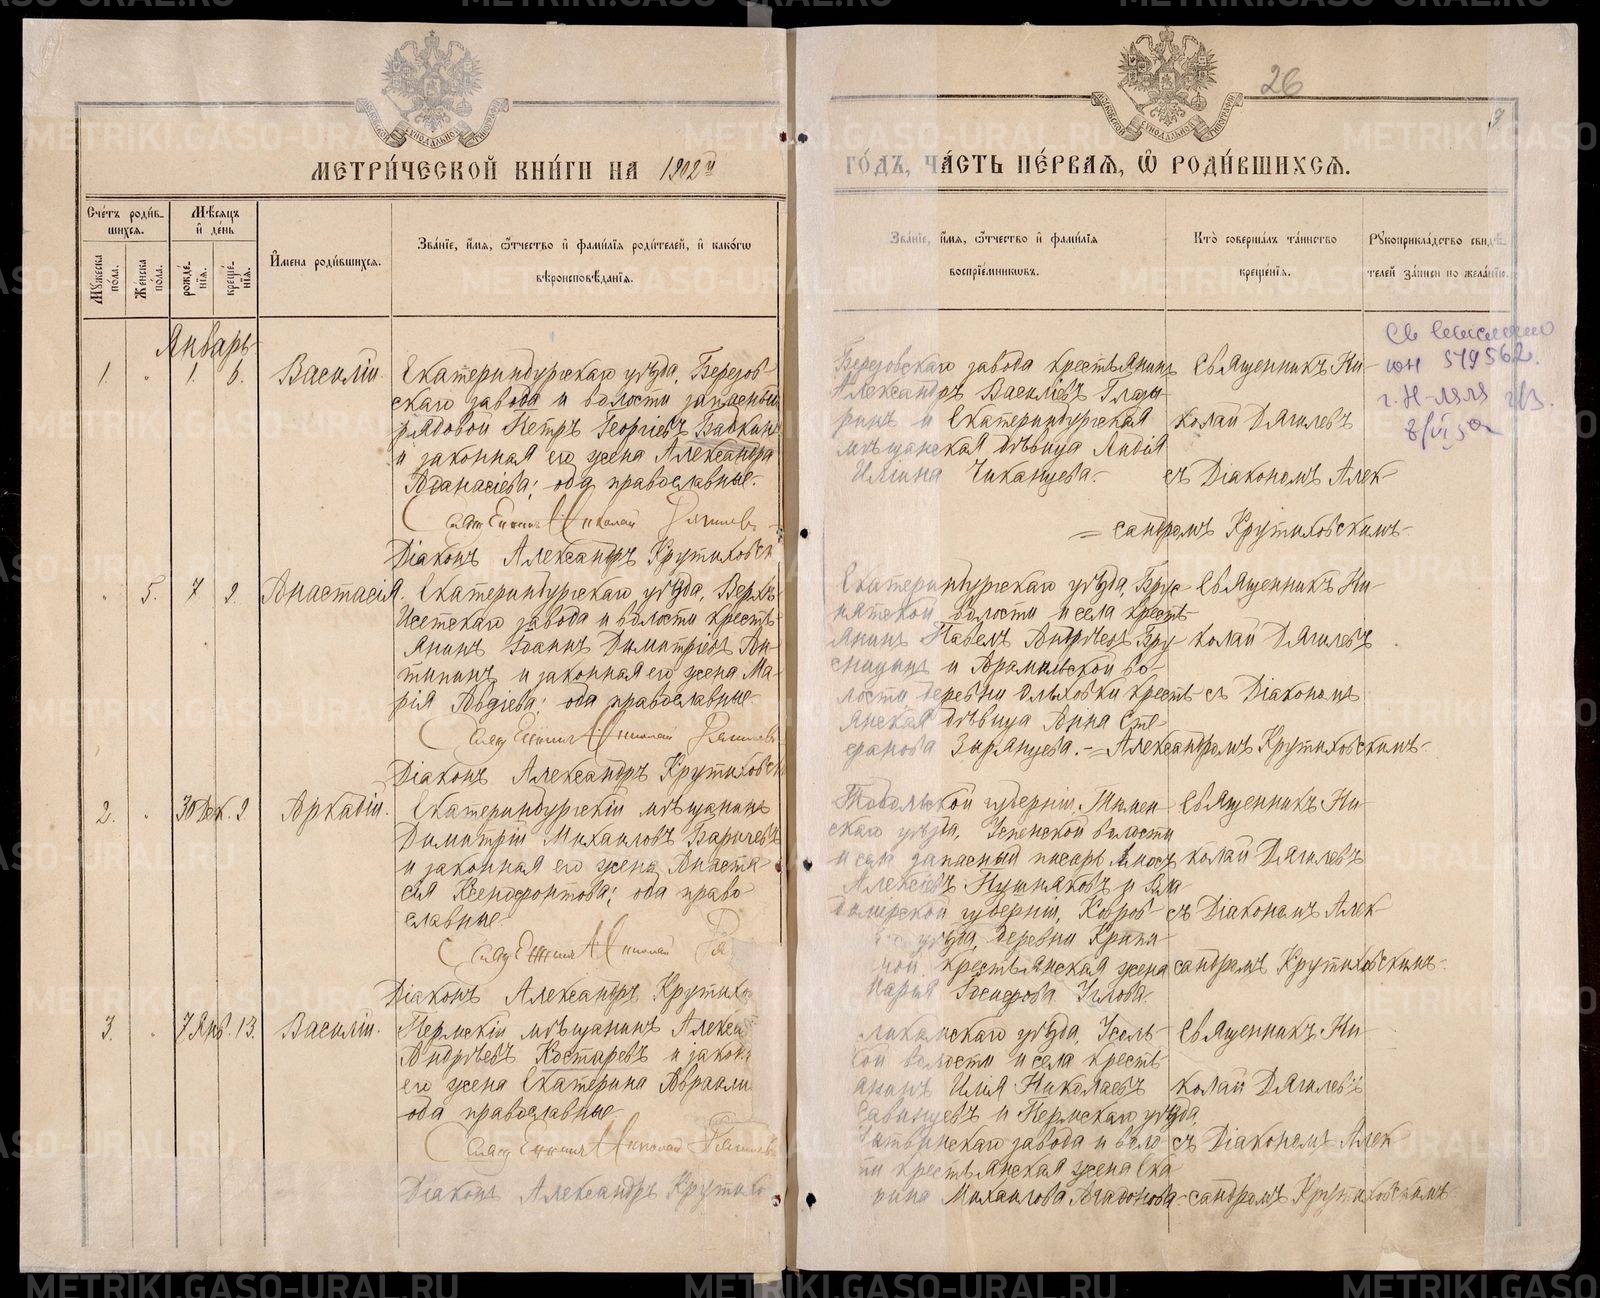 26
МЕТРИ́ЧЕСКОЙ КНИ́ГИ НА 1902й
ГО́ДЪ, ЧА́СТЬ ПЕ́РВАЯ, Ѡ҆ РОДИ́ВШИХСЯ.
Сче́тъ роди́в-
шихся.
Мѣ́сяцъ
и҆ де́нь
Мꙋ́жеска
по́ла.
Же́нска
по́ла.
рожде́-
нїя.
креще́-
нїя.
И҆мена̀ роди́вшихся.
Зва́нїе, и҆́мя, ѻ҆́тчество и҆ фами́лїя роди́телей, и҆ како́гѡ
вѣроисповѣ́данїя.
Зва́нїе, и҆́мя, ѻ҆́тчество и҆ фами́лїя
воспрїе́мникѡвъ.
Кто̀ соверша́лъ та́инство
креще́нїя.
Рꙋкоприкла́дство свидѣ́-
телей за́писи по жела́нїю.
Январь
1. " 1. 6. Василій.
Екатеринбургскаго уѣзда, Березов-
скаго завода и волости запасный
рядовой Петръ Георгіевъ Бабкинъ
и законная его жена Александра
Афанасіева; оба православные.
Николай Дягилевъ
Діаконъ Александръ Крутиховск
Березовскаго завода крестьянинъ
Александръ Василіевъ Глазы-
ринъ и Екатеринбургская
мѣщанская дѣвица Лидія
Ильина Чиканцева.
Священникъ Ни-
колай Дягилевъ
съ Діакономъ Алек-
сандромъ Крутиховскимъ.
579562.
г. Н-Ляля
" 5. 7 9. Анастасія.
Екатеринбургскаго уѣзда, Верхъ-
Исетскаго завода и волости кресть-
янинъ Іоаннъ Димитріевъ Ан-
типинъ и законная его жена Ма-
рія Авдіева; оба православные.
Николай Дягилевъ
Діаконъ Александръ Крутиховск
Екатеринбургскаго уѣзда, Брус-
нятской волости и села кресть-
янинъ Павелъ Андреевъ Бру-
сницынъ и Арамильской во-
лости, деревни Ольховки кресть-
янская дѣвица Анна Сте-
фанова Зырянцева.
Священникъ Ни-
колай Дягилевъ
съ Діакономъ
Александромъ Крутиховскимъ.
2. " 30 Дек. 9 Аркадій.
Екатеринбургскій мѣщанинъ
Димитрій Михаиловъ Барычевъ
и законная его жена Анаста-
сія Ксенофонтова; оба право-
славные.
Николай Дя
Діаконъ Александръ Крутихо
Тобольской губерніи, Тюмен-
скаго уѣзда, Успенской волости
и села запасный писарь
Алексіевъ Пушняковъ и Вла-
димірской губерніи, Ковров-
уѣзда, деревни
крестьянская жена
Марья Іосифова Углова.
Священникъ Ни-
колай Дягилевъ
съ Діакономъ Алек-
сандромъ Крутиховскимъ.
3. " 7 Янв. 13. Василій.
Пермскій мѣщанинъ Алексі
Андреевъ Костаревъ и закон
его жена Екатерина Авраами
оба православные.
Николай Дягилевъ
Діаконъ Александръ Крутихо
ликамскаго уѣзда, Усоль-
ской волости и села кресть-
янинъ Илія Николаевъ
Саванцевъ и Пермскаго уѣзда,
завода и воло-
ти крестьянская жена Ека
рина Михаилова Агафонова.
Священникъ Ни-
колай Дягилевъ
съ Діакономъ Алек-
сандромъ Крутиховскимъ
METRIKI.GASO-URAL.RU